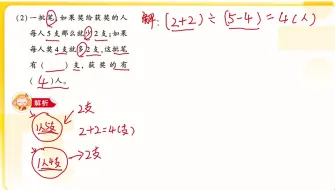 (2)一批笔,如果奖给获奖的人
每人5支那么就少2支;如果
每人奖4支就多2支,这批笔
有( )支,获奖的有
(4)人。
解:(2+2)÷(5-4)=4(人)
解析
1人5支
2支
2+2=4(支)
1人4支
2支